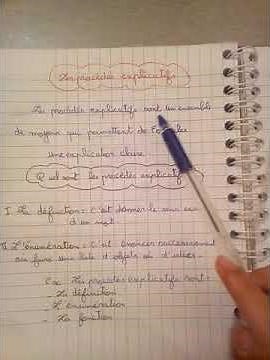 Les procédés explicatifs
Les procédés explicatifs sont un ensemble
de moyens qui permettent de
une explication claire
Quels sont les procédés explicatifs
I. La définition : C'est donner le sens
d'un mot
II. L'énumération : C'est énoncer successivement
ou faire une liste d'objets ou d'idées
Ex : Les procédés explicatifs sont :
- La définition
- L'énumération
- La fonction